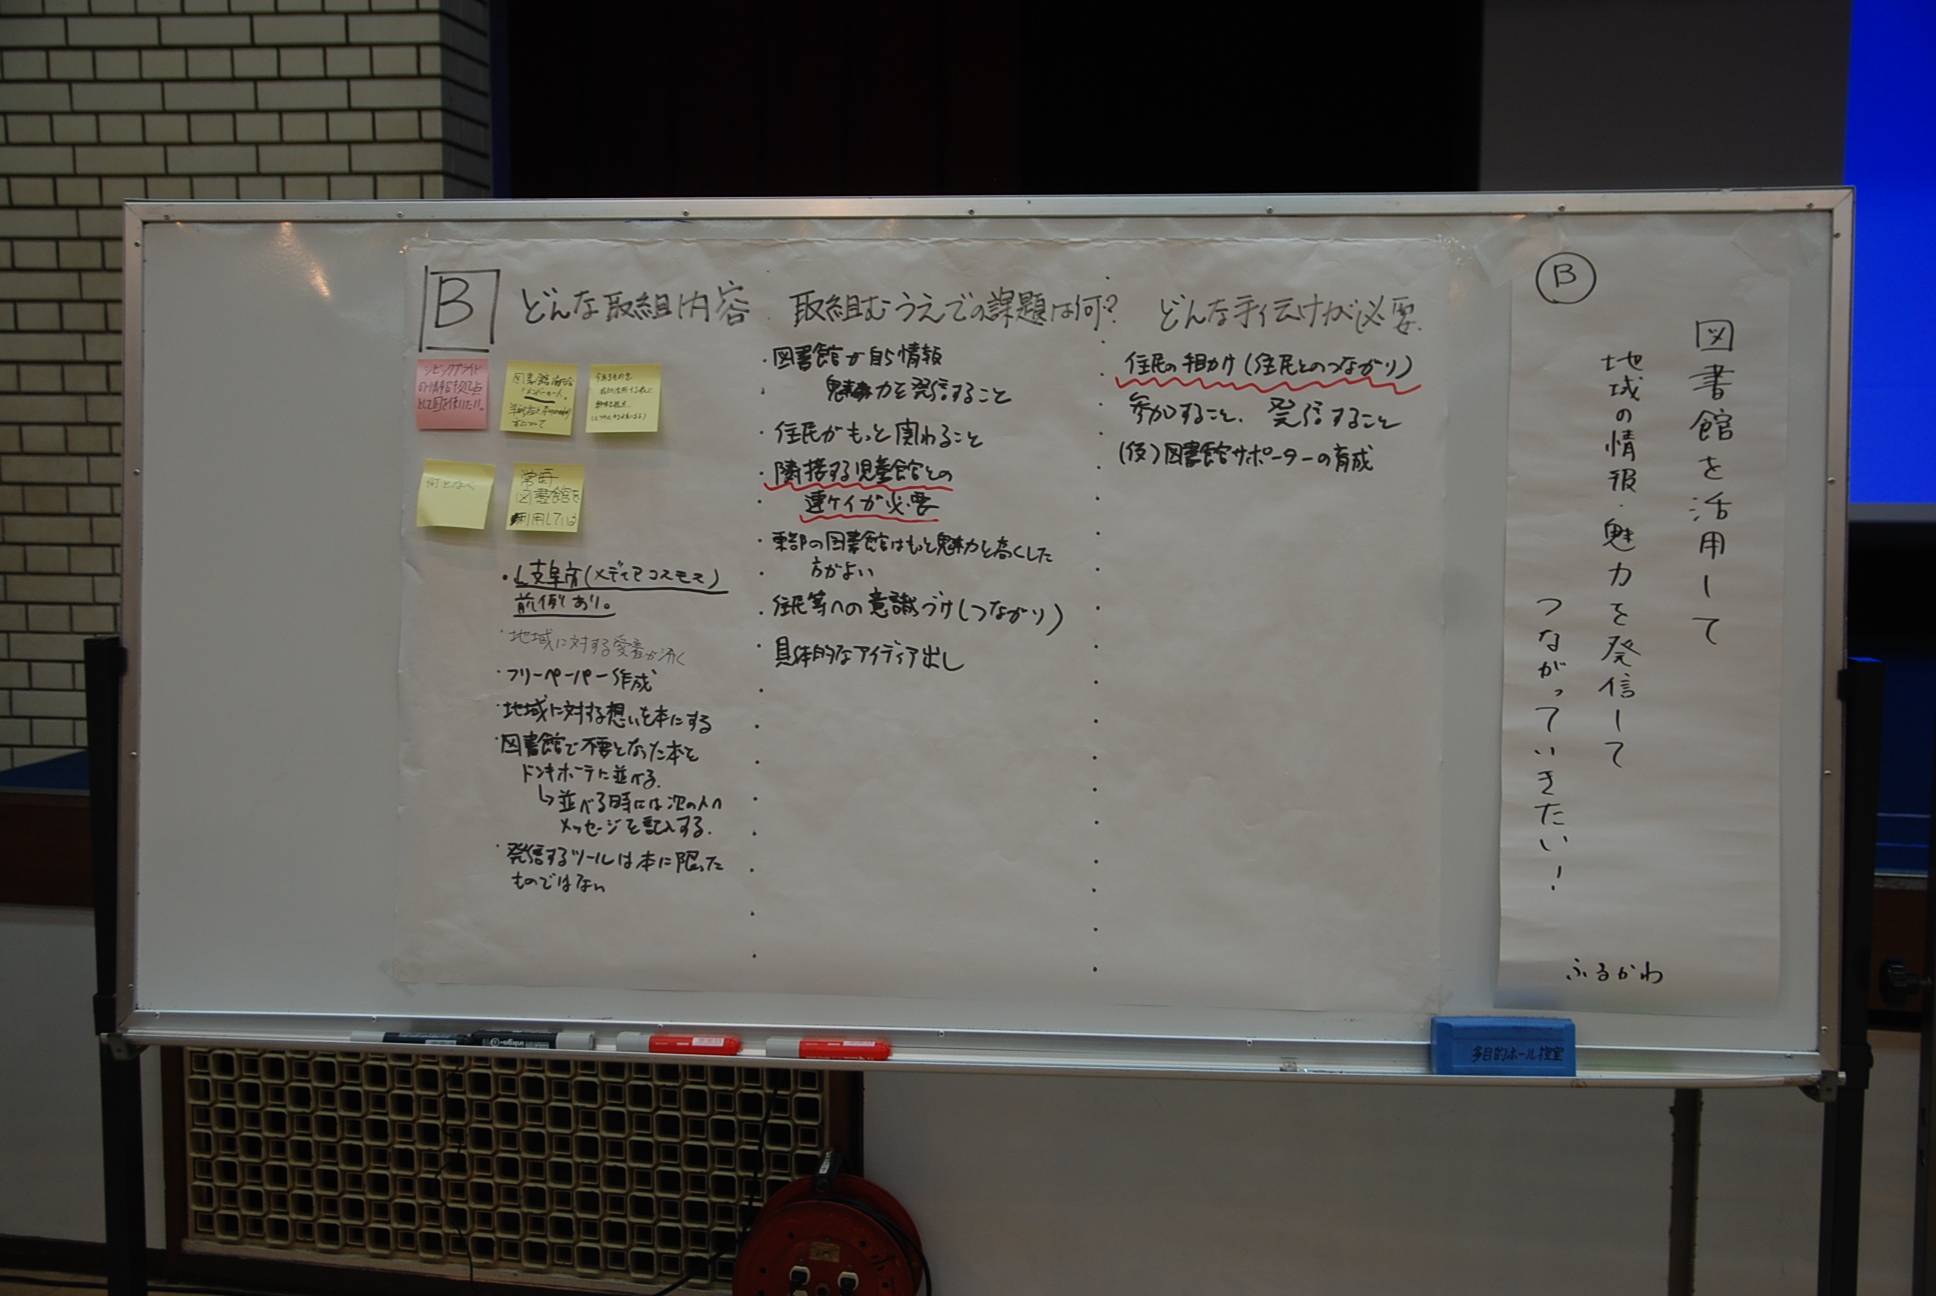 B
どんな取組内容
シビックプライド
の情報発信拠点
として図を使いたい。
図書館協議会
メンバーの一人。
何となく
常時
図書館を
利用している
・岐阜市(メディアコスモス)
前例あり。
・地域に対する愛着が沸く
・フリーペーパー作成
・地域に対する想いを本にする
・図書館で不要となった本を
ドンキホーテに並べる。
↳並べる時には次の人へ
メッセージを記入する。
・発信するツールは本に限った
ものではない
取組むうえでの課題は何?
・図書館が自ら情報
魅力を発信すること
・住民がもっと関わること
・隣接する児童館との
連ケイが必要
・東部の図書館はもっと魅力を高くした
方がよい
・住民等への意識づけ(つながり)
・具体的なアイディア出し
どんな手伝けが必要
住民の手助け(住民とのつながり)
参加すること、発信すること
(仮)図書館サポーターの育成
B
図書館を活用して
地域の情報・魅力を発信して
つながっていきたい!
ふるかわ
多目的ホール控室